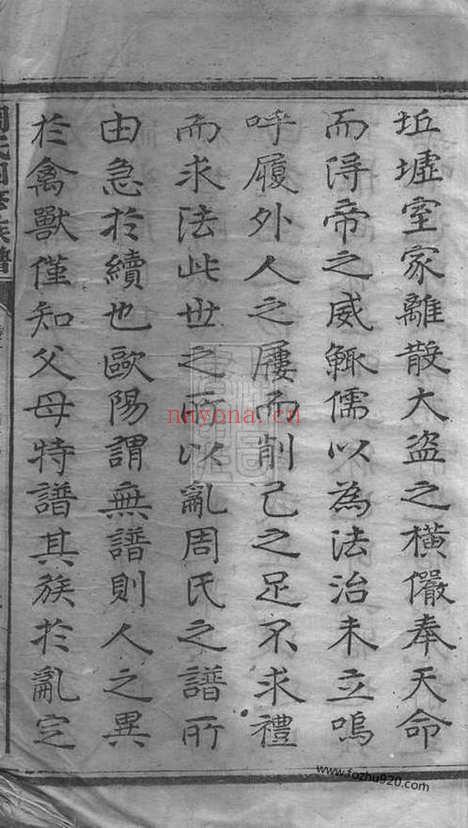 坵墟室家離散大盜之橫儼奉天命
而淂帝之威輙儒以為法治未立嗚
呼履外人之屨而削己之足不求禮
而求法此世之所以亂周氏之譜所
由急於續也歐陽謂無譜則人之異
於禽獸僅知父母特譜其族於亂定
族譜
nayona.cn
www.fozhu920.com